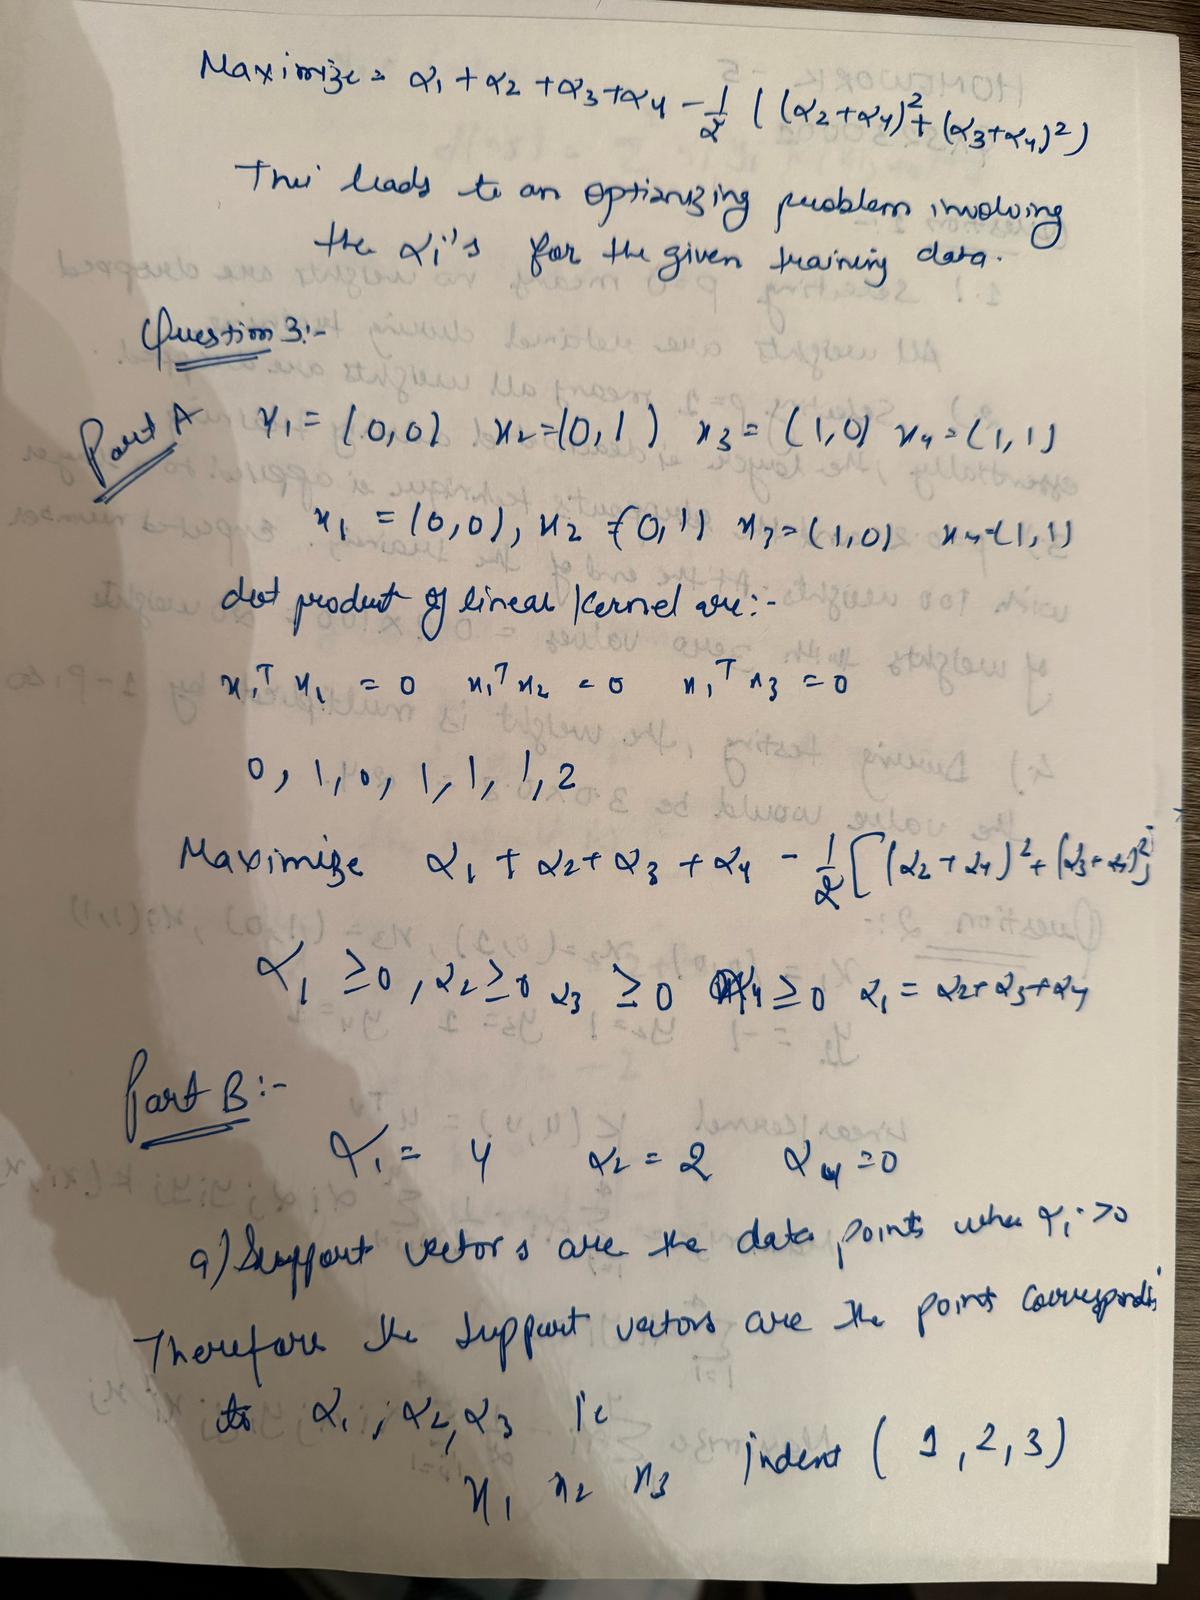 Maximize = α₁ + α₂ + α₃ + α₄ - 1/2 ( (α₂+α₄)² + (α₃+α₄)² )
This leads to an optimizing problem involving
the αᵢ's for the given training data.
Question 3:-
Part A x₁ = (0,0) x₂=(0,1) x₃ = (1,0) x₄=(1,1)
x₁ = (0,0), x₂ = (0,1) x₃=(1,0) x₄=(1,1)
dot product of linear kernel are:-
x₁ᵀ x₁ = 0 x₁ᵀ x₂ = 0 x₁ᵀ x₃ = 0
0, 1, 0, 1, 1, 1, 2
Maximize α₁ + α₂ + α₃ + α₄ - 1/2 [ (α₂ + α₄)² + (α₃ + α₄)² ]
α₁ ≥ 0, α₂ ≥ 0 α₃ ≥ 0 α₄ ≥ 0 α₁ = α₂+α₃+α₄
Part B :-
α₁ = 4 α₂ = 2 α₄ = 0
a) Support vectors are the data points when αᵢ > 0
Therefore the support vectors are the points
to α₁, α₂, α₃ ie
x₁ x₂ x₃ indent ( 1, 2, 3)